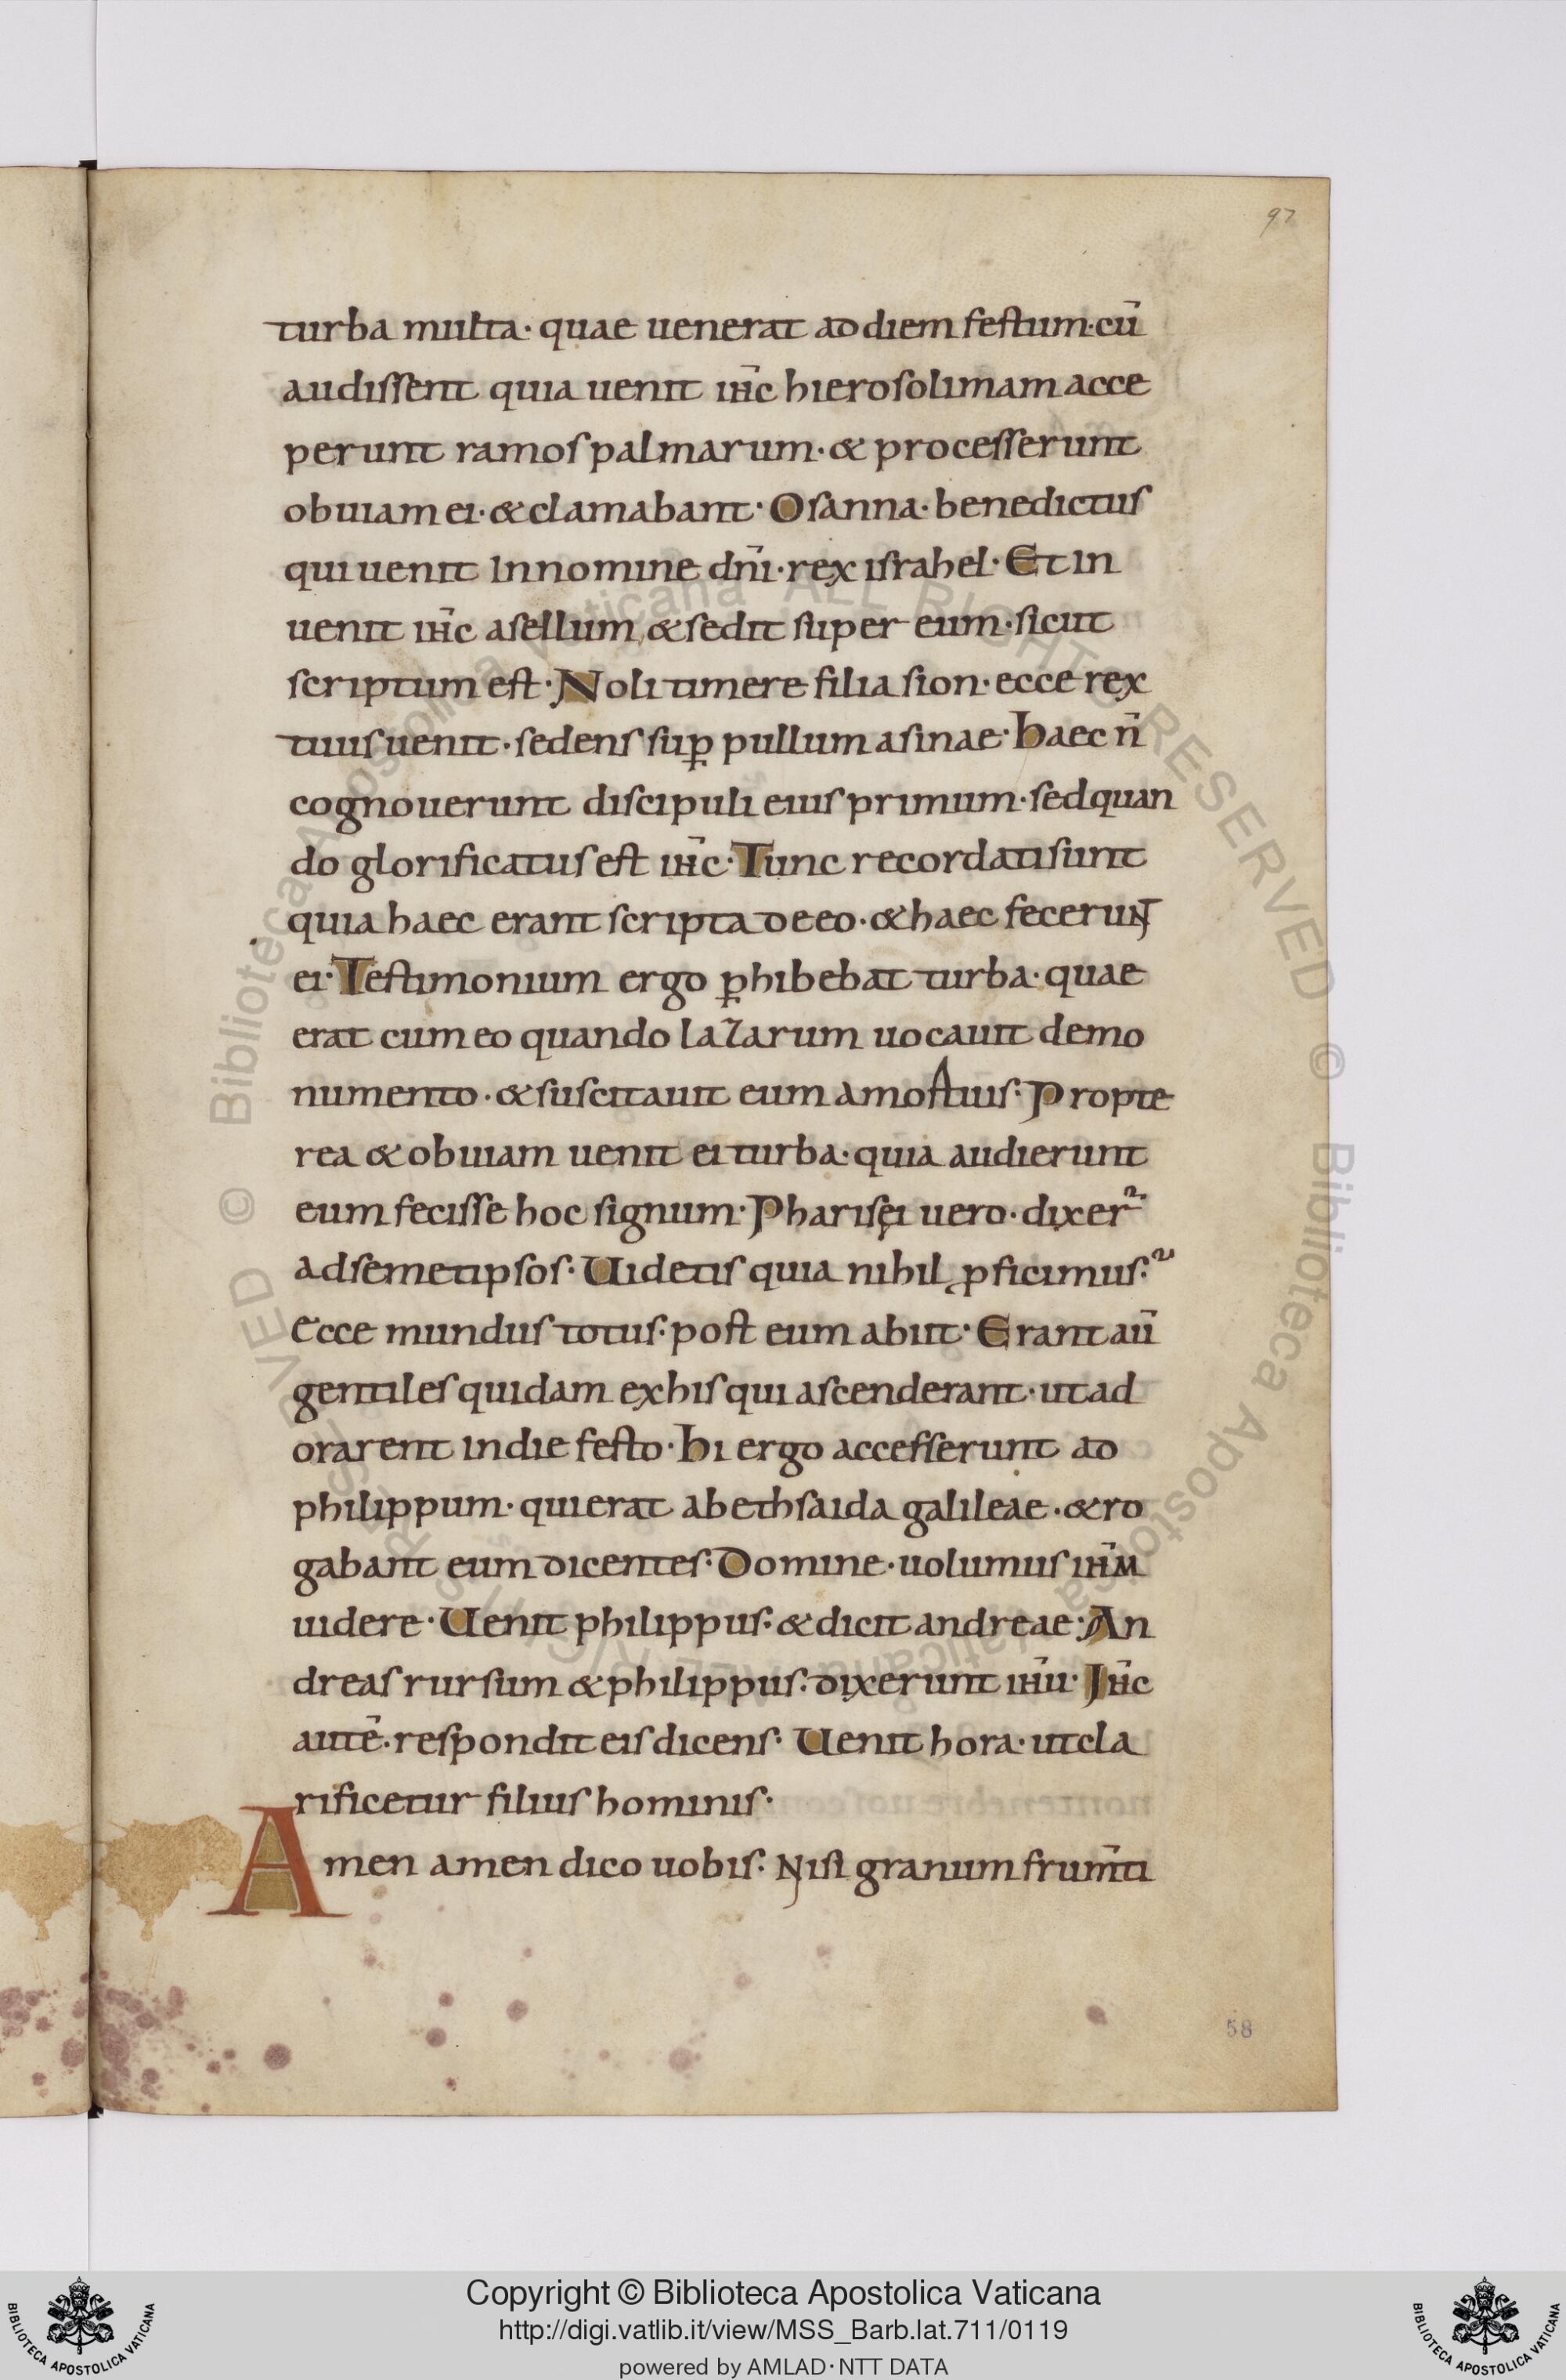 97
turba multa· quae uenerat ad diem festum· cū
audissent quia uenit ihc̄ hierosolimam acce
perunt ramos palmarum· & processerunt
obuiam ei· & clamabant· Osanna· benedictus
qui uenit In nomine dn̄i· rex israhel· Et In
uenit ihc̄ asellum, & sedit super eum· sicut
scriptum est· Noli timere filia sion· ecce rex
tuus uenit· sedens suꝑ pullum asinae· Haec n̄
cognouerunt discipuli eius primum· sed quan
do glorificatus est ihc̄· Tunc recordati sunt
quia haec erant scripta de eo· & haec fecerunt
ei· Testimonium ergo ꝑhibebat turba· quae
erat cum eo quando lazarum uocauit de mo
numento· & suscitauit eum a mortuis· Propte
rea & obuiam uenit ei turba· quia audierunt
eum fecisse hoc signum· Pharisęi uero· dixer̃
ad semetipsos· Uidetis quia nihil ꝓficimus·
Ecce mundus totus· post eum abiit· Erant aū
gentiles quidam ex his qui ascenderant· ut ad
orarent in die festo· Hi ergo accesserunt ad
philippum· qui erat a bethsaida galileae· & ro
gabant eum dicentes· Domine· uolumus ihm̄
uidere· Uenit philippus· & dicit andreae· An
dreas rursum & philippus· dixerunt ihū· Ihc̄
autē· respondit eis dicens· Uenit hora· ut cla
rificetur filius hominis·
Amen amen dico uobis· Nisi granum frum̄ti
58
© Biblioteca Apostolica Vaticana ALL RIGHTS RESERVED © Biblioteca Apostolica Vaticana ALL RIGHTS RESERVED
Copyright © Biblioteca Apostolica Vaticana
http://digi.vatlib.it/view/MSS_Barb.lat.711/0119
powered by AMLAD·NTT DATA
BIBLIOTECA APOSTOLICA VATICANA
BIBLIOTECA APOSTOLICA VATICANA